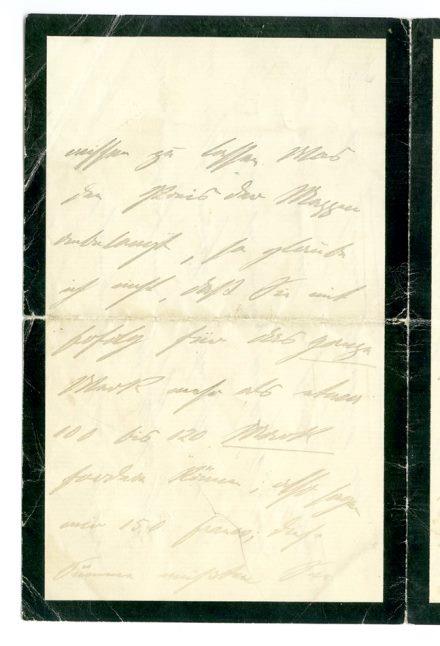 wissen zu lassen Was
den Preis der Mappen
anbelangt, so glaube
ich nicht, daß Sie mit
Erfolg für das ganze
Werk mehr als etwa
100 bis 120 Mark
fordern können, also sagen
wir 150 francs, diese
Summe müßten Sie